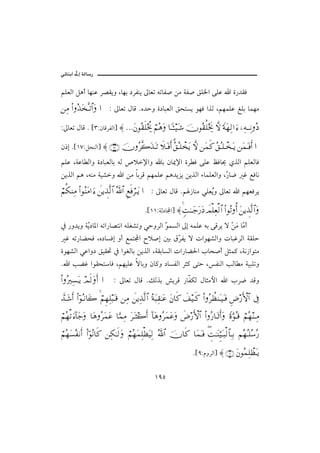 رسالة إلى الله ابتدائي
فقدرة الله على الخلق صفة من صفاته تعالى ينفرد بها، ويقصر عنها أهل العلم
مهما بلغ علمهم، لذا فهو يستحق العبادة وحده. قال تعالى : ﴿ وَٱتَّخَذُوا۟ مِن
دُونِهِۦٓ ءَالِهَةً لَّا يَخْلُقُونَ شَيْـًٔا وَهُمْ يُخْلَقُونَ... ﴾ [الفرقان:٣] . قال تعالى:
﴿ أَفَمَن يَخْلُقُ كَمَن لَّا يَخْلُقُ ۗ أَفَلَا تَذَكَّرُونَ ﴾ [النحل:١٧]. إذن
فالعلم الذي يحافظ على فطرة الإيمان بالله والإخلاص له بالعبادة والطاعة، علم
نافع غير ضارّ، والعلماء الذين يزيدهم علمهم قرباً من الله وخشية منه، هم الذين
يرفعهم الله تعالى ويُعلي منازلهم. قال تعالى : ﴿ يَرْفَعِ ٱللَّهُ ٱلَّذِينَ ءَامَنُوا۟ مِنكُمْ
وَٱلَّذِينَ أُوتُوا۟ ٱلْعِلْمَ دَرَجَـٰتٍ ۚ ﴾ [المجادلة:١١].
أمّا مَنْ لا يرقى به علمه إلى السموّ الروحي وتشغله انتصاراته الماديّة ويدور في
حلقة الرغبات والشهوات لا يفرّق بين إصلاح المجتمع أو إفساده، فحضارته غير
متوازنة، كمثل أصحاب الحضارات السابقة، الذين بالغوا في تحقيق دواعي الشهوة
وتلبية مطالب النفس، حتى كثر الفساد وكان وبالاً عليهم، فاستحقوا غضب الله.
وقد ضرب الله الأمثال لكفّار قريش بذلك. قال تعالى : ﴿ أَوَلَمْ يَسِيرُوا۟
فِى ٱلْأَرْضِ فَيَنظُرُوا۟ كَيْفَ كَانَ عَـٰقِبَةُ ٱلَّذِينَ مِن قَبْلِهِمْ ۚ كَانُوٓا۟ أَشَدَّ
مِنْهُمْ قُوَّةً وَأَثَارُوا۟ ٱلْأَرْضَ وَعَمَرُوهَآ أَكْثَرَ مِمَّا عَمَرُوهَا وَجَآءَتْهُمْ
رُسُلُهُم بِٱلْبَيِّنَـٰتِ ۖ فَمَا كَانَ ٱللَّهُ لِيَظْلِمَهُمْ وَلَـٰكِن كَانُوٓا۟ أَنفُسَهُمْ
يَظْلِمُونَ ﴾ [الروم:٩].
١٩٠